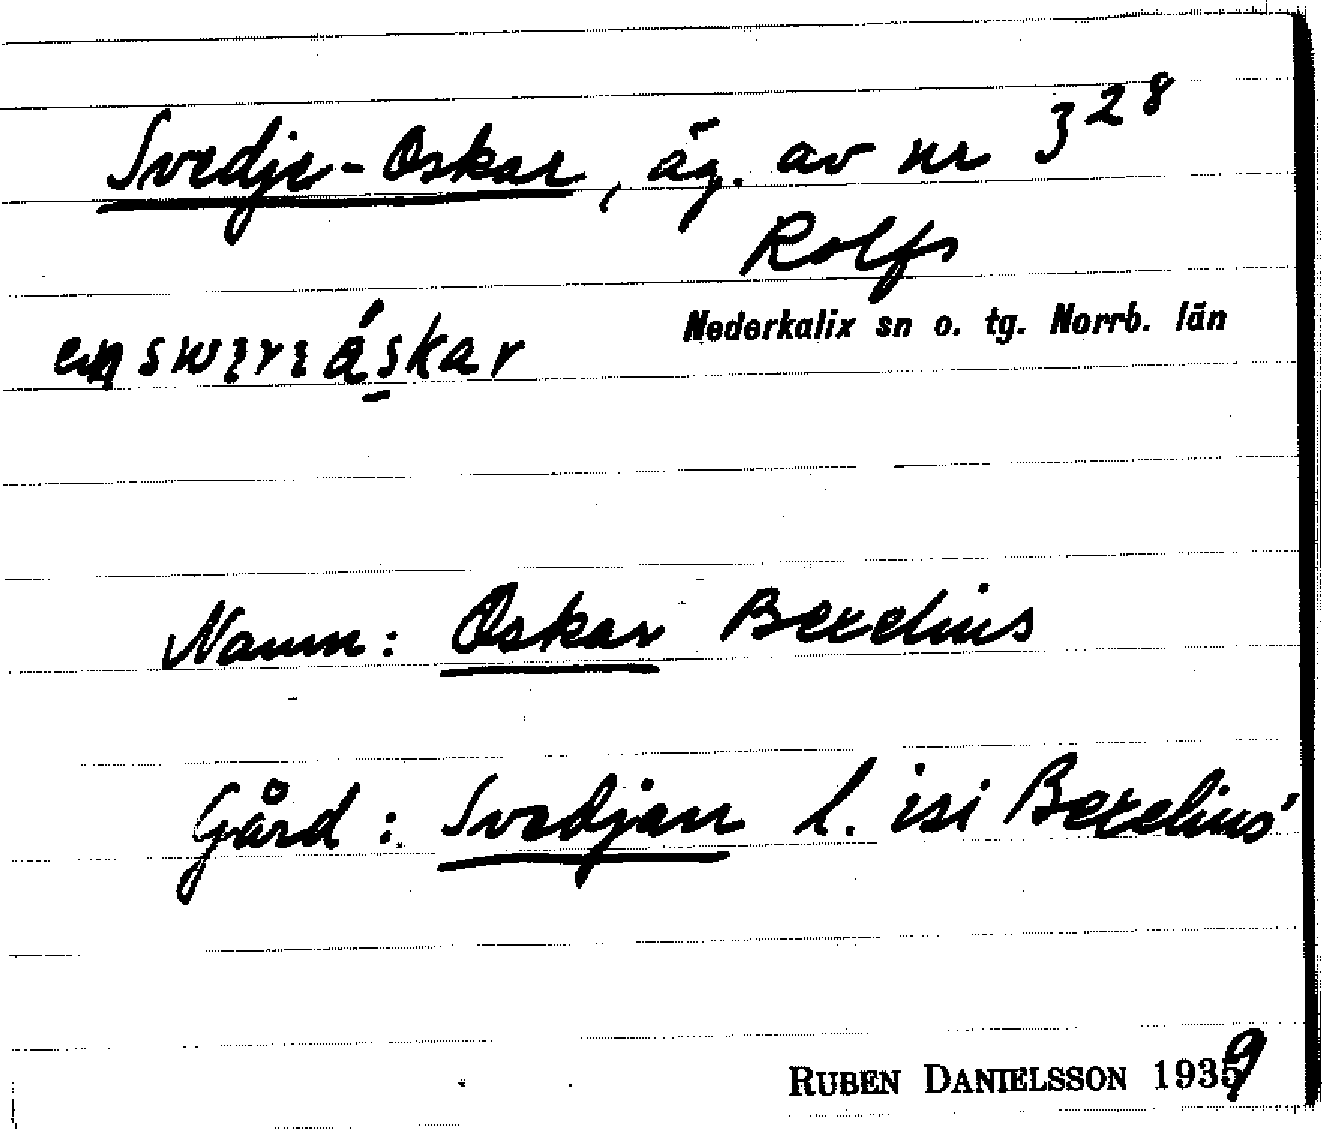 Svedje-Oskar, äg. av nr 3²⁸
Rolfs
Nederkalix sn o. tg. Norrb. län
Namn: Oskar Bexelius
Gård: Svedjan l. isi Bexelius'
RUBEN DANIELSSON 1939